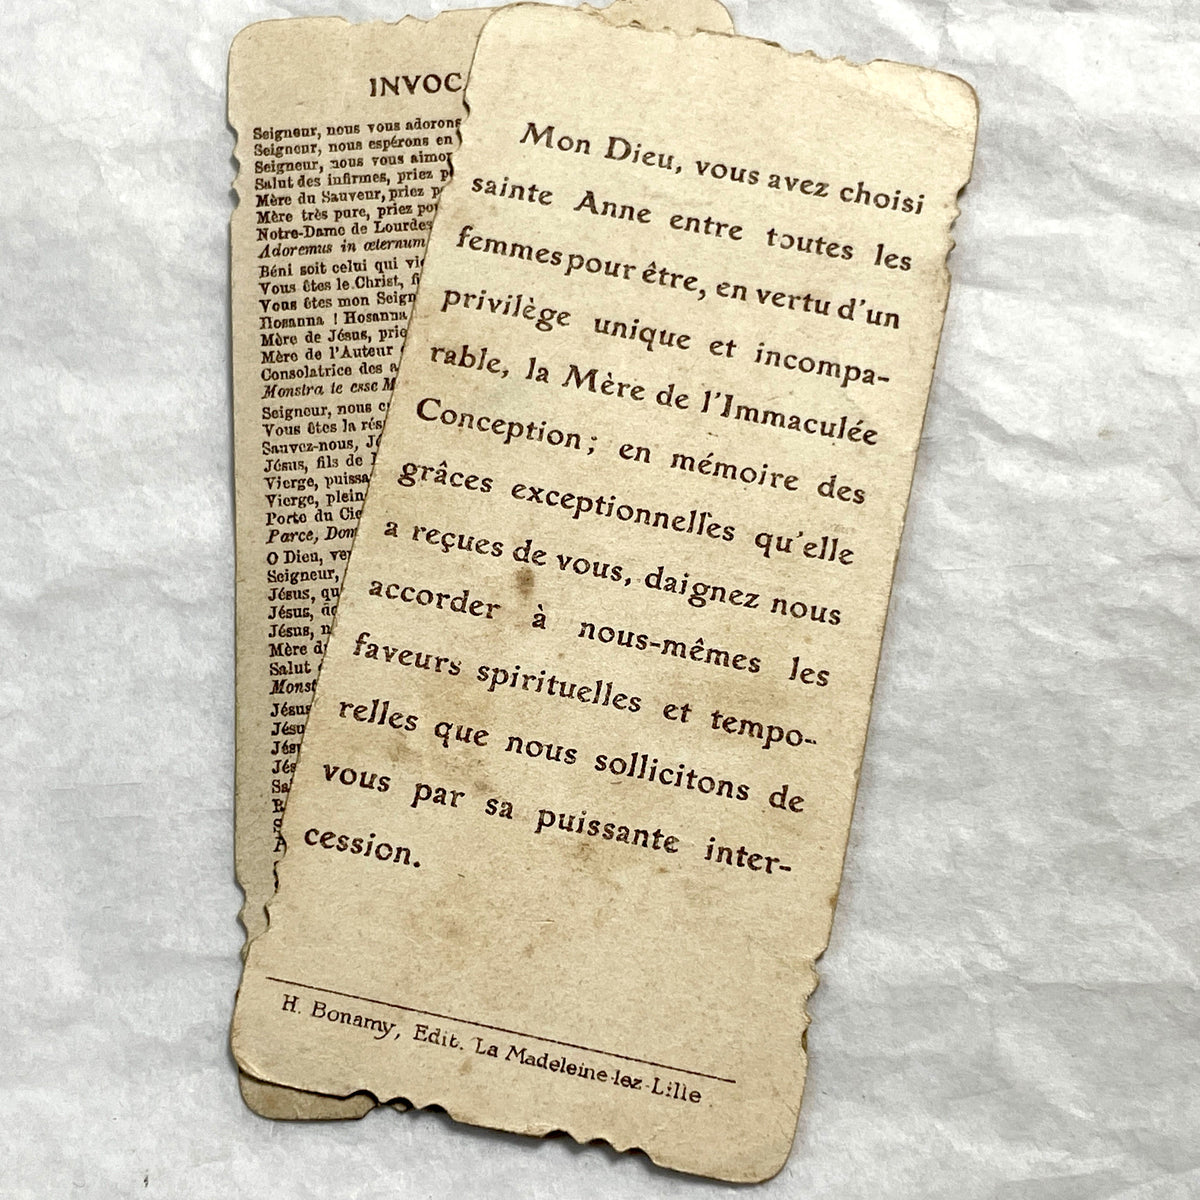 INVOC
Seigneur, nous vous adorons
Seigneur, nous espérons en
Seigneur, nous vous
Salut des infirmes, priez
Mère du Sauveur, priez
Mère très pure, priez
Notre-Dame de Lourdes
Adoremus in æternum
Béni soit celui qui
Vous êtes le Christ,
Vous êtes mon
Hosanna ! Hosanna
Mère de Jésus,
Mère de l'Auteur
Consolatrice des
Monstra te esse
Seigneur, nous
Vous êtes la
Sauvez-nous,
Jésus, fils de
Vierge,
Vierge,
Porte du
Parce,
O Dieu,
Seigneur,
Jésus,
Jésus,
Jésus,
Mère
Salut
Mon Dieu, vous avez choisi
sainte Anne entre toutes les
femmes pour être, en vertu d'un
privilège unique et incompa-
rable, la Mère de l'Immaculée
Conception ; en mémoire des
grâces exceptionnelles qu'elle
a reçues de vous, daignez nous
accorder à nous-mêmes les
faveurs spirituelles et tempo-
relles que nous sollicitons de
vous par sa puissante inter-
cession.
H. Bonamy, Edit. La Madeleine-lez-Lille